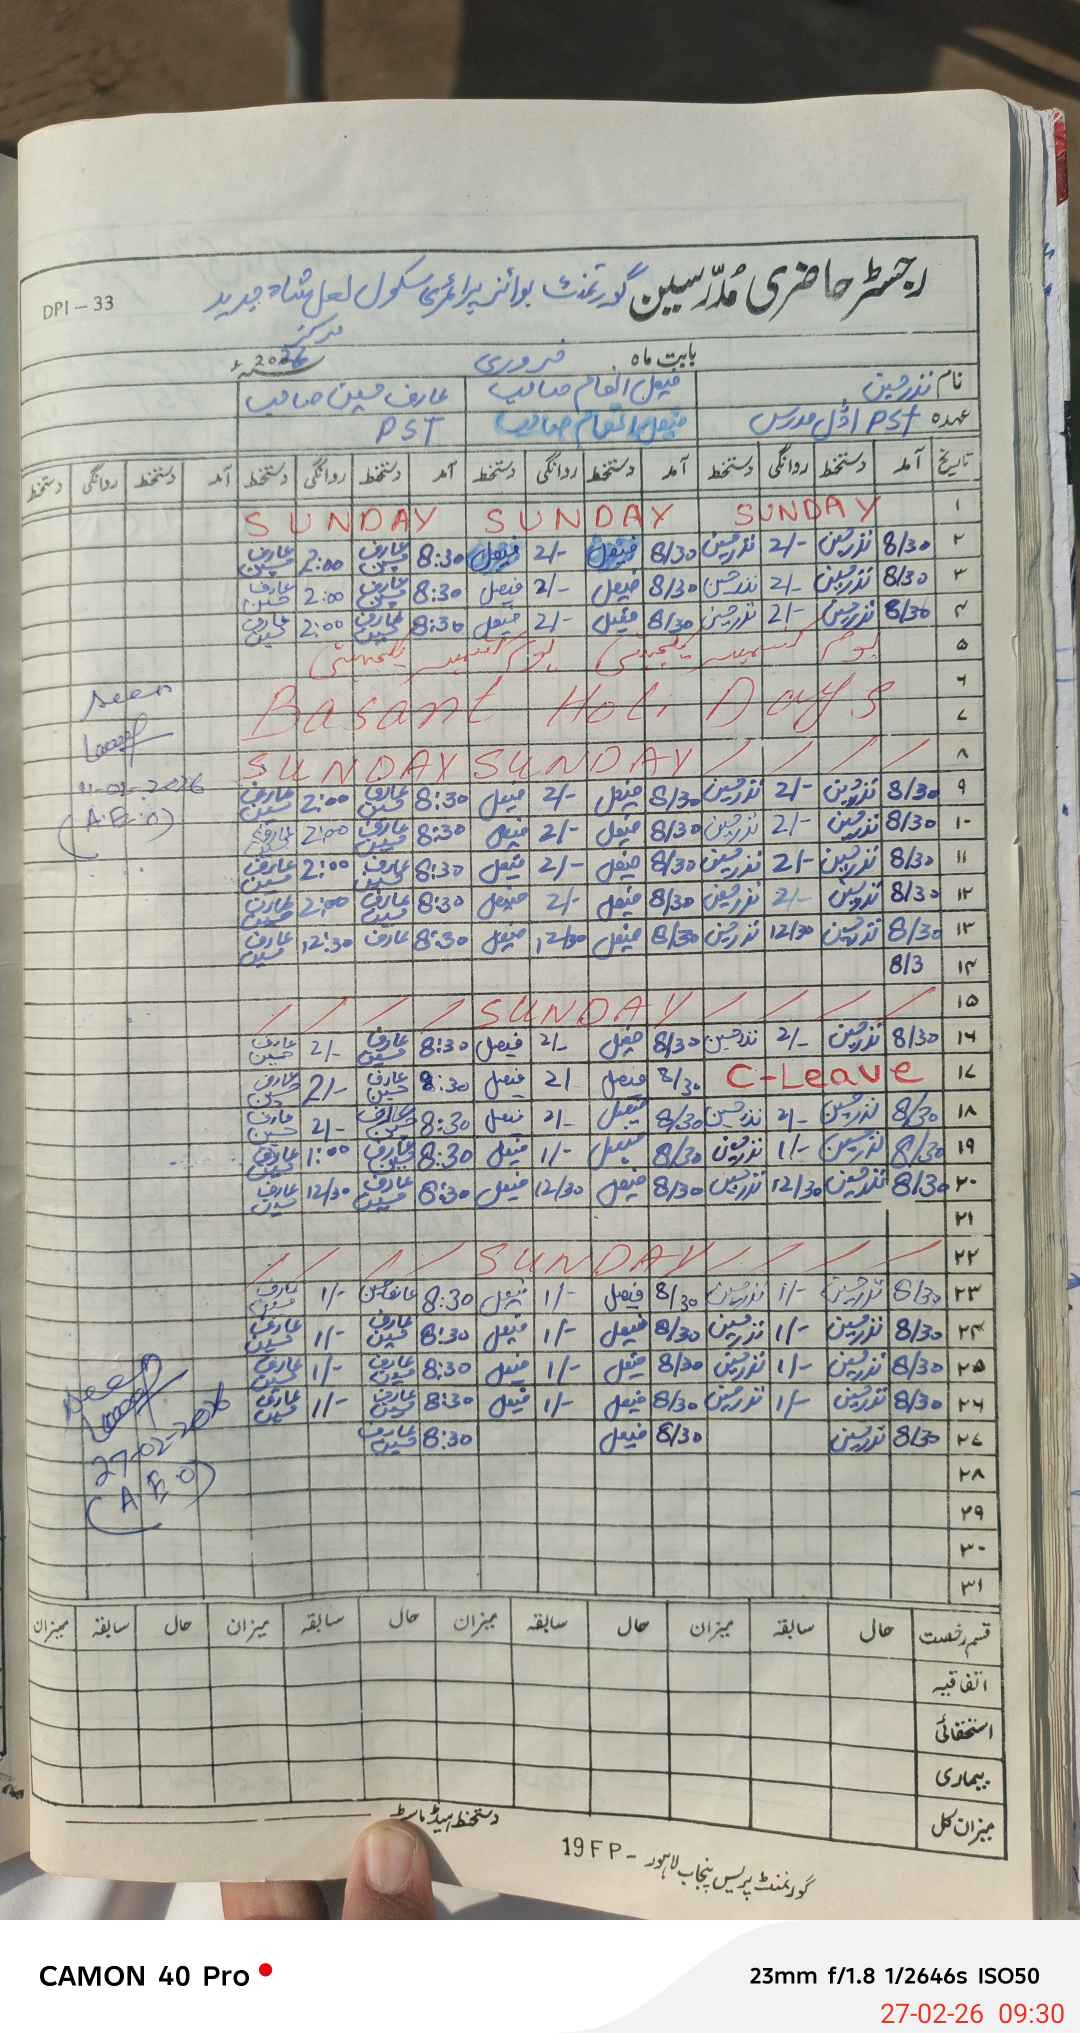 رجسٹر حاضری مُدرّسین گورنمنٹ بوائز پرائمری سکول لعل شاہ جدید
DPI - 33
مرکز
بابت ماہ فروری 2026ء
نام نذر حسین فیصل انعام صاحب عارف حسین صاحب
عہدہ PST اوّل مدرس فیصل انعام صاحب PST
تاریخ آمد دستخط روانگی دستخط آمد دستخط روانگی دستخط آمد دستخط روانگی دستخط آمد دستخط روانگی دستخط
۱ SUNDAY SUNDAY SUNDAY
۲ 8/30 نذر حسین 2/- نذر حسین 8/30 فیصل 2/- فیصل 8:30 عارف حسین 2:00 عارف حسین
۳ 8/30 نذر حسین 2/- نذر حسین 8/30 فیصل 2/- فیصل 8:30 عارف حسین 2:00 عارف حسین
۴ 8/30 نذر حسین 2/- نذر حسین 8/30 فیصل 2/- فیصل 8:30 عارف حسین 2:00 عارف حسین
۵ یوم کشمیر یکجہتی یوم کشمیر یکجہتی
۶ Basant Holi Days
۷
۸ SUNDAY SUNDAY
۹ 8/30 نذر حسین 2/- نذر حسین 8/30 فیصل 2/- فیصل 8:30 عارف حسین 2:00 عارف حسین
۱۰ 8/30 نذر حسین 2/- نذر حسین 8/30 فیصل 2/- فیصل 8:30 عارف حسین 2:00 عارف حسین
۱۱ 8/30 نذر حسین 2/- نذر حسین 8/30 فیصل 2/- فیصل 8:30 عارف حسین 2:00 عارف حسین
۱۲ 8/30 نذر حسین 2/- نذر حسین 8/30 فیصل 2/- فیصل 8:30 عارف حسین 2:00 عارف حسین
۱۳ 8/30 نذر حسین 12/30 نذر حسین 8/30 فیصل 12/30 فیصل 8:30 عارف 12:30 عارف حسین
۱۴ 8/3
۱۵ SUNDAY
۱۶ 8/30 نذر حسین 2/- نذر حسین 8/30 فیصل 2/- فیصل 8:30 عارف حسین 2/- عارف حسین
۱۷ C-Leave 8/30 فیصل 2/ فیصل 8:30 عارف حسین 2/- عارف حسین
۱۸ 8/30 نذر حسین 2/- نذر حسین 8/30 فیصل 2/- فیصل 8:30 عارف حسین 2/- عارف حسین
۱۹ 8/30 نذر حسین 1/- نذر حسین 8/30 فیصل 1/- فیصل 8:30 عارف حسین 1:00 عارف حسین
۲۰ 8/30 نذر حسین 12/30 نذر حسین 8/30 فیصل 12/30 فیصل 8:30 عارف حسین 12/30 عارف حسین
۲۱
۲۲ SUNDAY
۲۳ 8/30 نذر حسین 1/- نذر حسین 8/30 فیصل 1/- فیصل 8:30 عارف حسین 1/- عارف حسین
۲۴ 8/30 نذر حسین 1/- نذر حسین 8/30 فیصل 1/- فیصل 8:30 عارف حسین 1/- عارف حسین
۲۵ 8/30 نذر حسین 1/- نذر حسین 8/30 فیصل 1/- فیصل 8:30 عارف حسین 1/- عارف حسین
۲۶ 8/30 نذر حسین 1/- نذر حسین 8/30 فیصل 1/- فیصل 8:30 عارف حسین 1/- عارف حسین
۲۷ 8/30 نذر حسین 8/30 فیصل 8:30 عارف حسین
۲۸
۲۹
۳۰
۳۱
seen
(A.E.O)
seen
27-02-2026
(A.E.O)
قسم رخصت حال سابقہ میزان حال سابقہ میزان حال سابقہ میزان حال سابقہ میزان
اتفاقیہ
استحقاقی
بیماری
میزان کل
دستخط ہیڈ ماسٹر
19 FP - گورنمنٹ پریس پنجاب لاہور
CAMON 40 Pro
23mm f/1.8 1/2646s ISO50
27-02-26 09:30